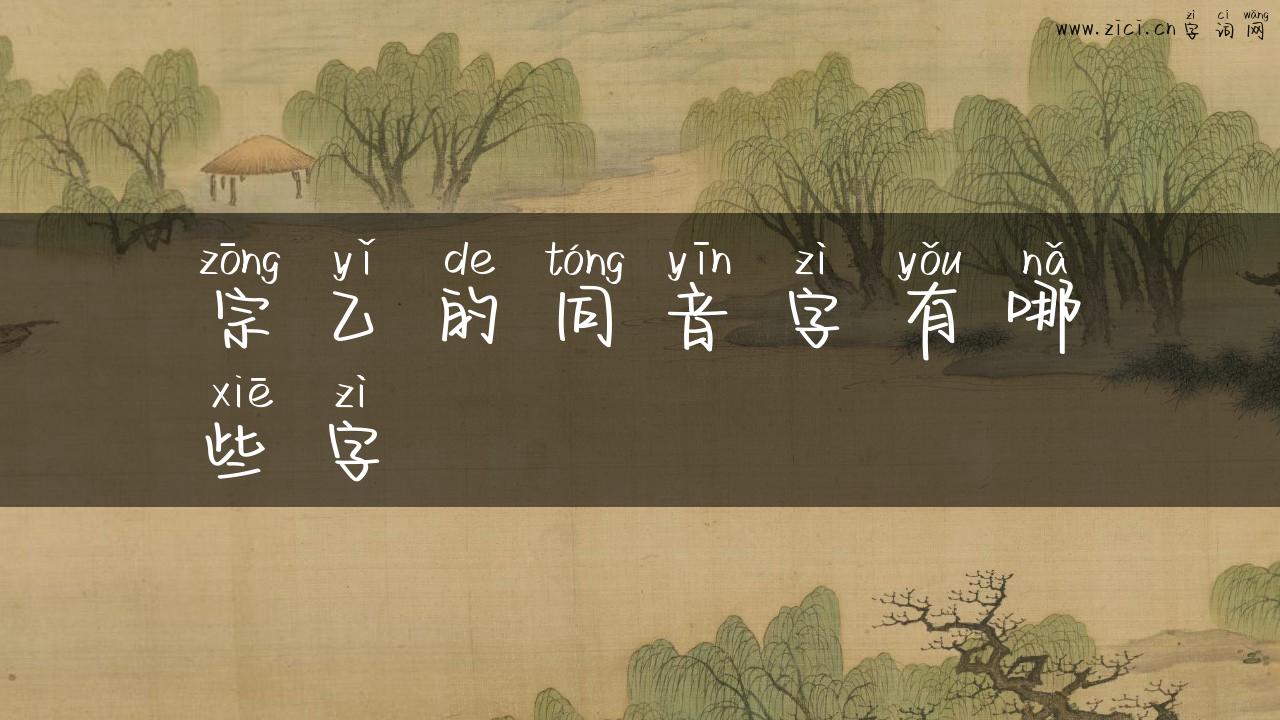 zì cí wǎng
www.zici.cn 字 词 网
zōng yǐ de tóng yīn zì yǒu nǎ
宗 乙 的 同 音 字 有 哪
xiē zì
些 字